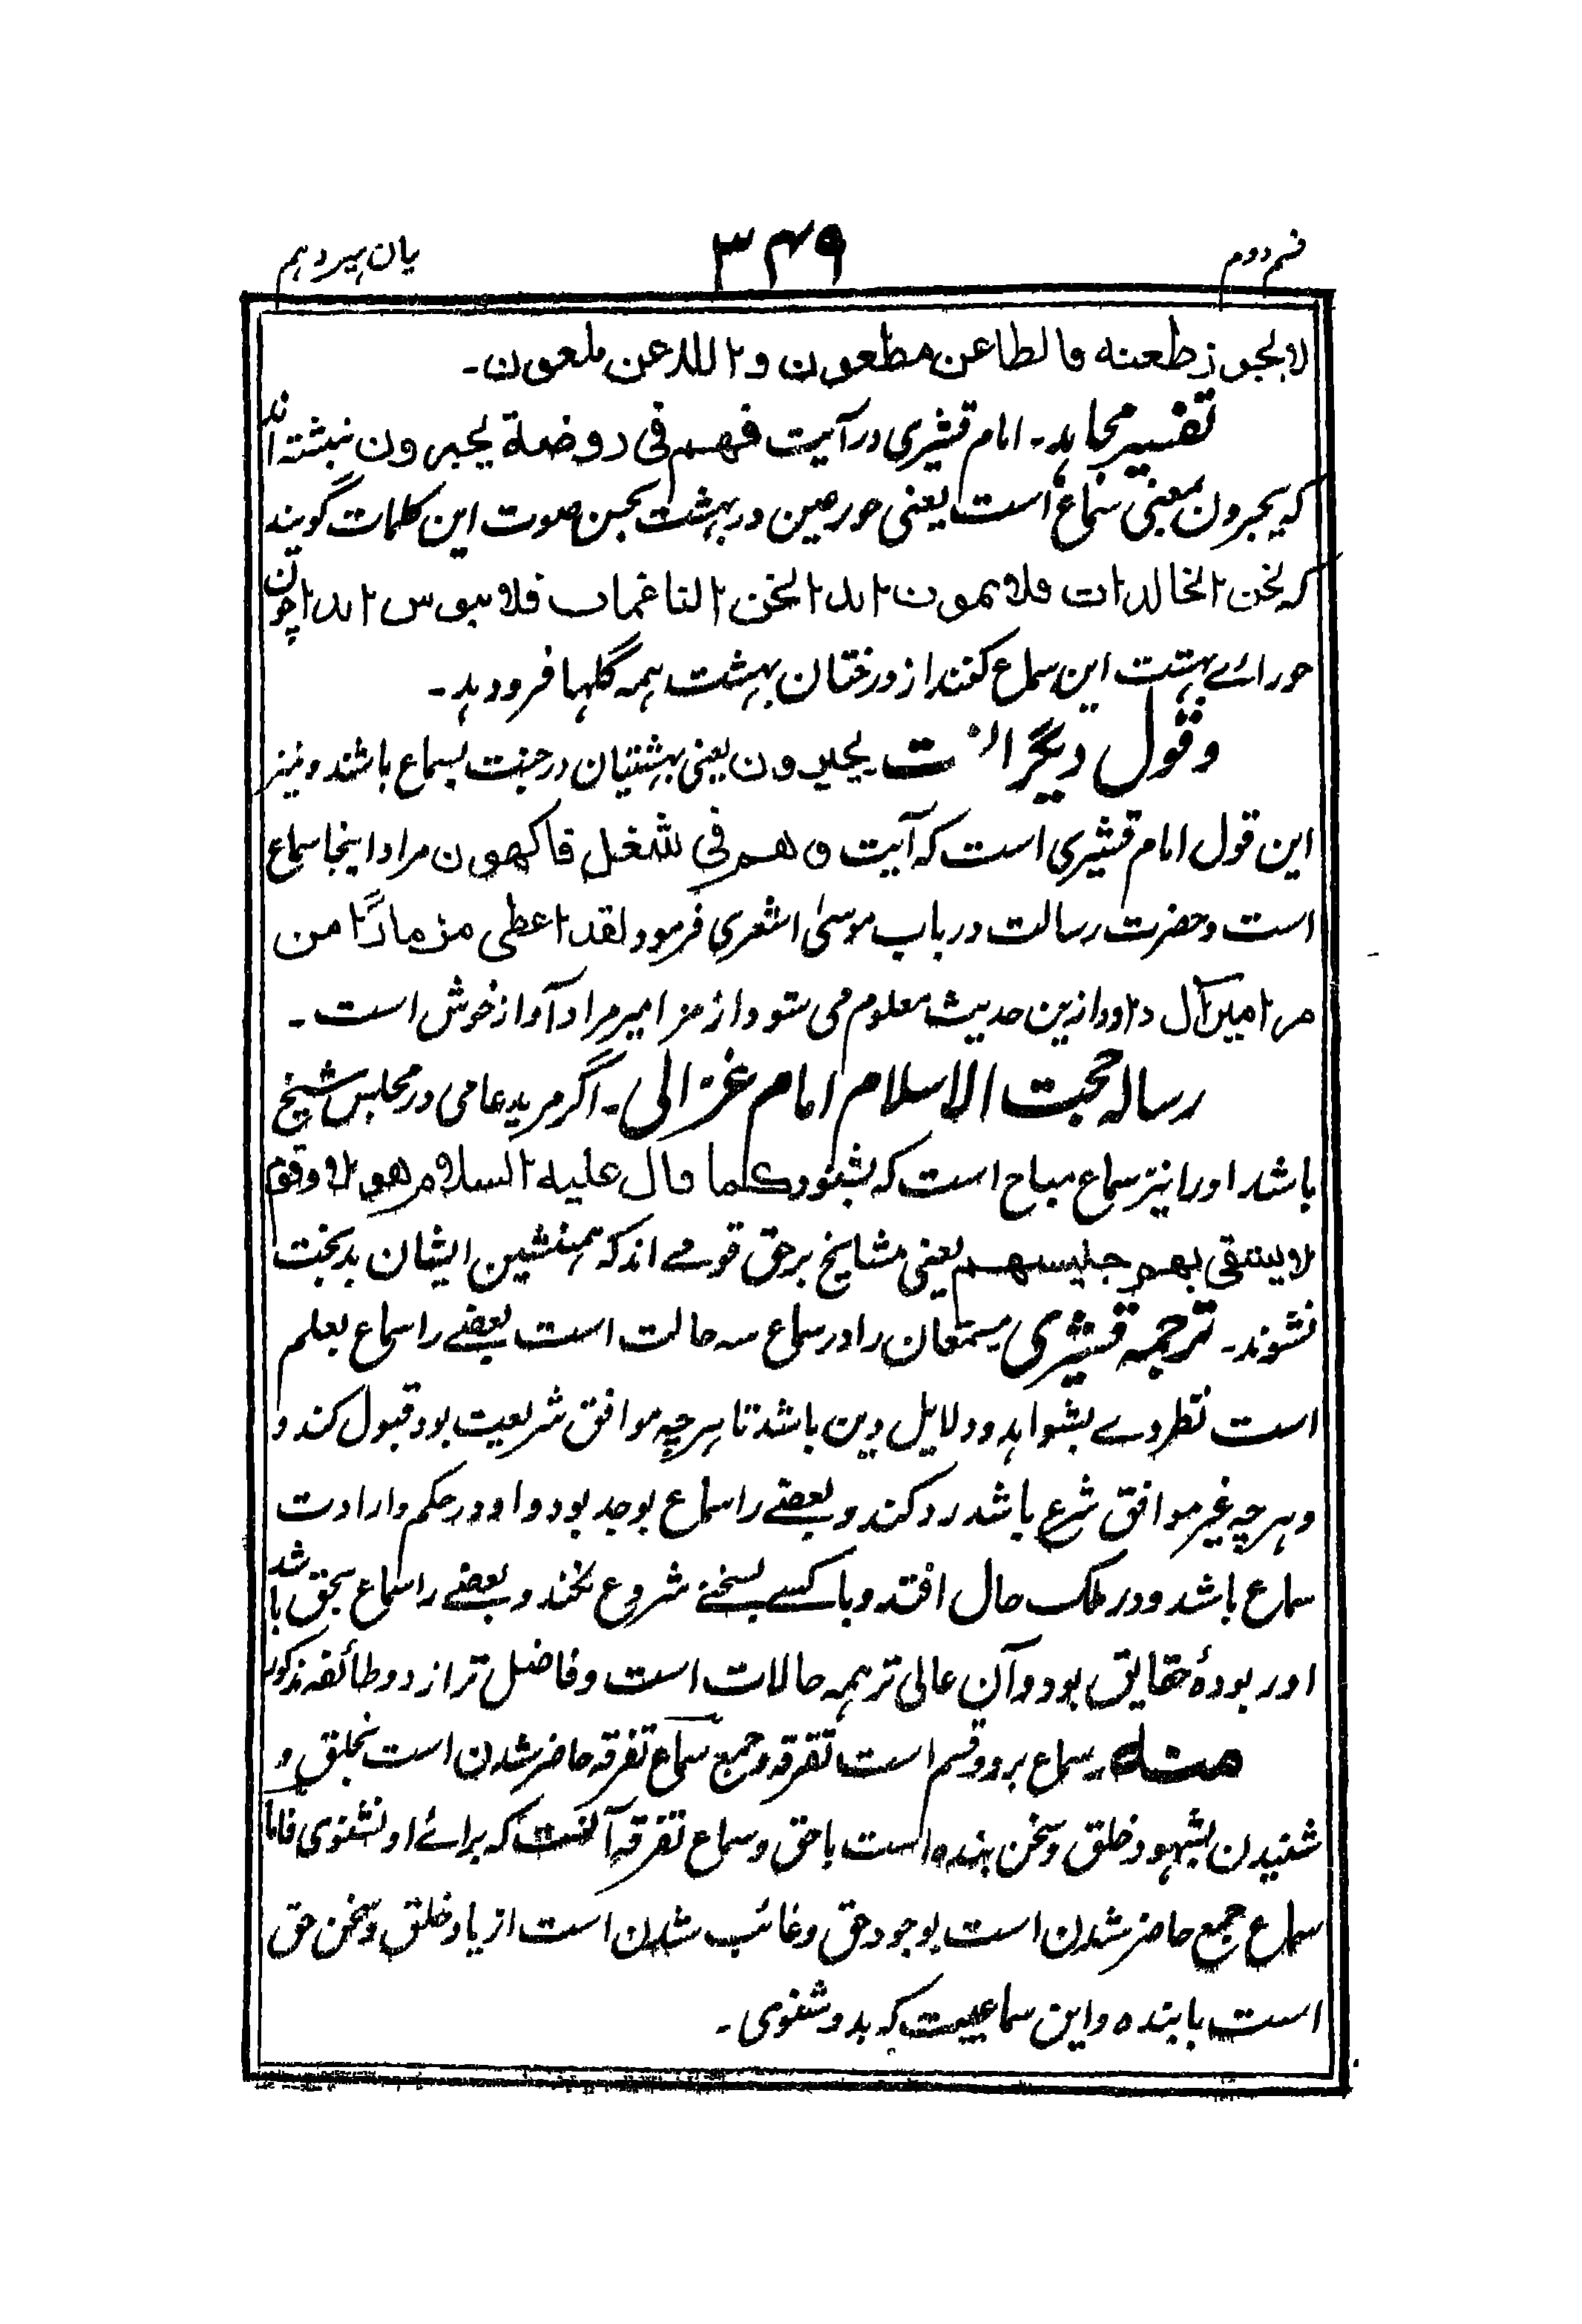 قسم دوم ۳۴۹ بیان سیزدہم
لا یجوز طعنه فالطاعن مطعون و اللاعن ملعون۔
تفسیر مجاہد۔ امام قشیری در آیت فهم فی روضة یحبرون نبشتہ اند
کہ یحبرون بمعنی سماع است یعنی حور عین در بہشت بحسن صوت این کلمات گویند
کہ نحن الخالدات فلا نموت ابدا نحن الناعمات فلا نبوس ابدا چون
حورائے بہشت این سماع کنند از درختان بہشت ہمہ گلہا فرود ہد۔
وقول دیگر است یحبرون یعنی بہشتیان در جنت بسماع باشند و نیز
این قول امام قشیری است کہ آیت وهم فی شغل فاکهون مراد اینجا سماع
است و حضرت رسالت در باب موسیٰ اشعری فرمود لقد اعطی مزمارًا من
مزامیر آل داود ازین حدیث معلوم می شود از مزامیر مراد آواز خوش است۔
رسالہ حجت الاسلام امام غزالی۔ اگر مرید عامی در مجلس شیخ
باشد اورا نیز سماع مباح است کہ بشنود کما قال علیه السلام هولاء قوم
لا یشقی بهم جلیسهم یعنی مشایخ بر حق قومے اند کہ ہمنشین ایشان بدبخت
نشوند۔ ترجمہ قشیری مستمعان را در سماع سہ حالت است بعضے را سماع بعلم
است نظر وے بشواہد و دلایل دین باشد تا ہر چہ موافق شریعت بود قبول کند و
و ہر چہ غیر موافق شرع باشد رد کند و بعضے را سماع بوجد بود و او در حکم وارادت
سماع باشد و در ملک حال افتد و با کسے بسخنے شروع نکند و بعضے را سماع بحق باشد
اور بودۂ حقایق بود و آن عالی تر ہمہ حالات است و فاضل تر از دو طائفہ مذکور
منه۔ سماع بر دو قسم است تفرقہ و جمع سماع تفرقہ حاضر شدن است بخلق و
شنیدن بشہود خلق و سخن بندہ است با حق و سماع تفرقہ آنست کہ برائے او نشنوی فاما
سماع جمع حاضر شدن است بوجود حق و غائب شدن است از یاد خلق و سخن حق
است با بندہ و این سماعیست کہ بدو شنوی۔